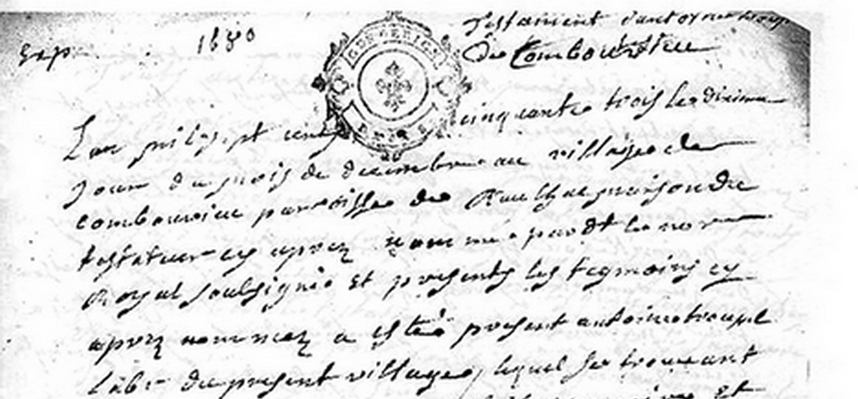 Exp 1680
Testament d'antoine troup
De Combourieu
L'an mil sept cens cinquante trois le dixieme
Jour du mois de decembre au village de
combourieu paroisse de maison du
testateur cy aprez nommé pardt le no.re
Royal soulsigné et presents les tegmoins cy
aprez nommez a esté present antoine troupel
lab.r du present village, lequel se trouvant
et